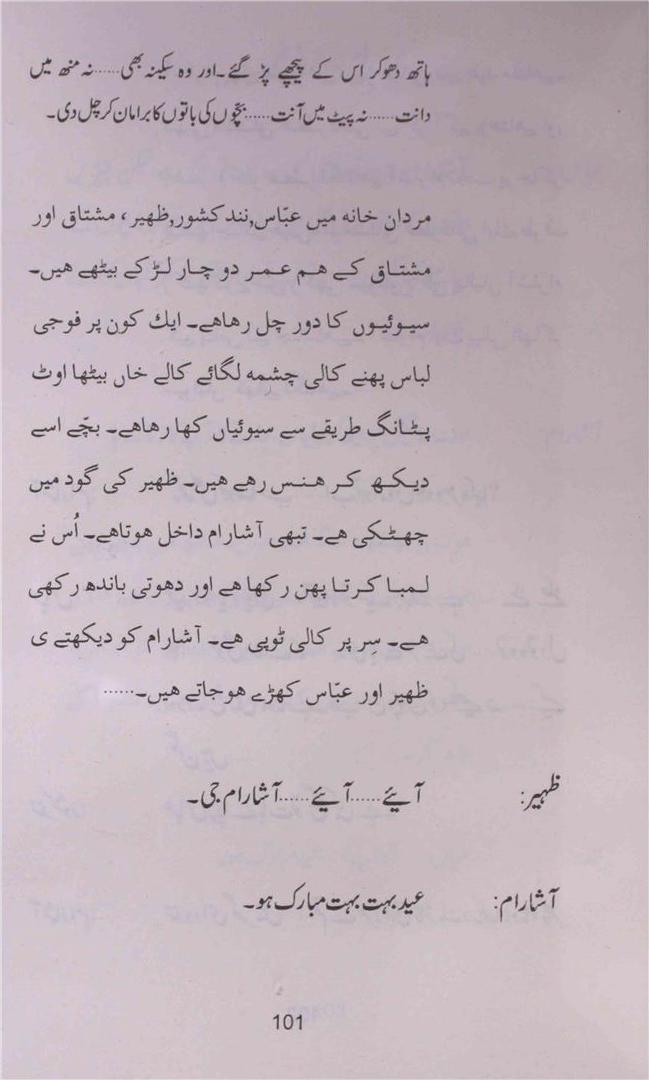 ہاتھ دھوکر اس کے پیچھے پڑ گئے۔اور وہ سکینہ بھی......نہ منھ میں
دانت......نہ پیٹ میں آنت......بچّوں کی باتوں کا برا مان کر چل دی۔
مردان خانہ میں عبّاس,نند کشور,ظہیر، مشتاق اور
مشتاق کے ہم عمر دو چار لڑکے بیٹھے ہیں۔
سیوئیوں کا دور چل رہاہے۔ ایك کون پر فوجی
لباس پہنے کالی چشمہ لگائے کالے خاں بیٹھا اوٹ
پٹانگ طریقے سے سیوئیاں کھا رہاہے۔ بچّے اسے
دیکھ کر ہنس رہے ہیں۔ ظہیر کی گود میں
چھٹکی ہے۔ تبھی آشارام داخل ہوتاہے۔ اُس نے
لمبا کرتا پہن رکھا ہے اور دھوتی باندھ رکھی
ہے۔ سِر پر کالی ٹوپی ہے۔ آشارام کو دیکھتے ی
ظہیر اور عبّاس کھڑے ہوجاتے ہیں۔......
ظہیر: آیئے......آیئے......آشارام جی۔
آشارام: عید بہت بہت مبارک ہو۔
101